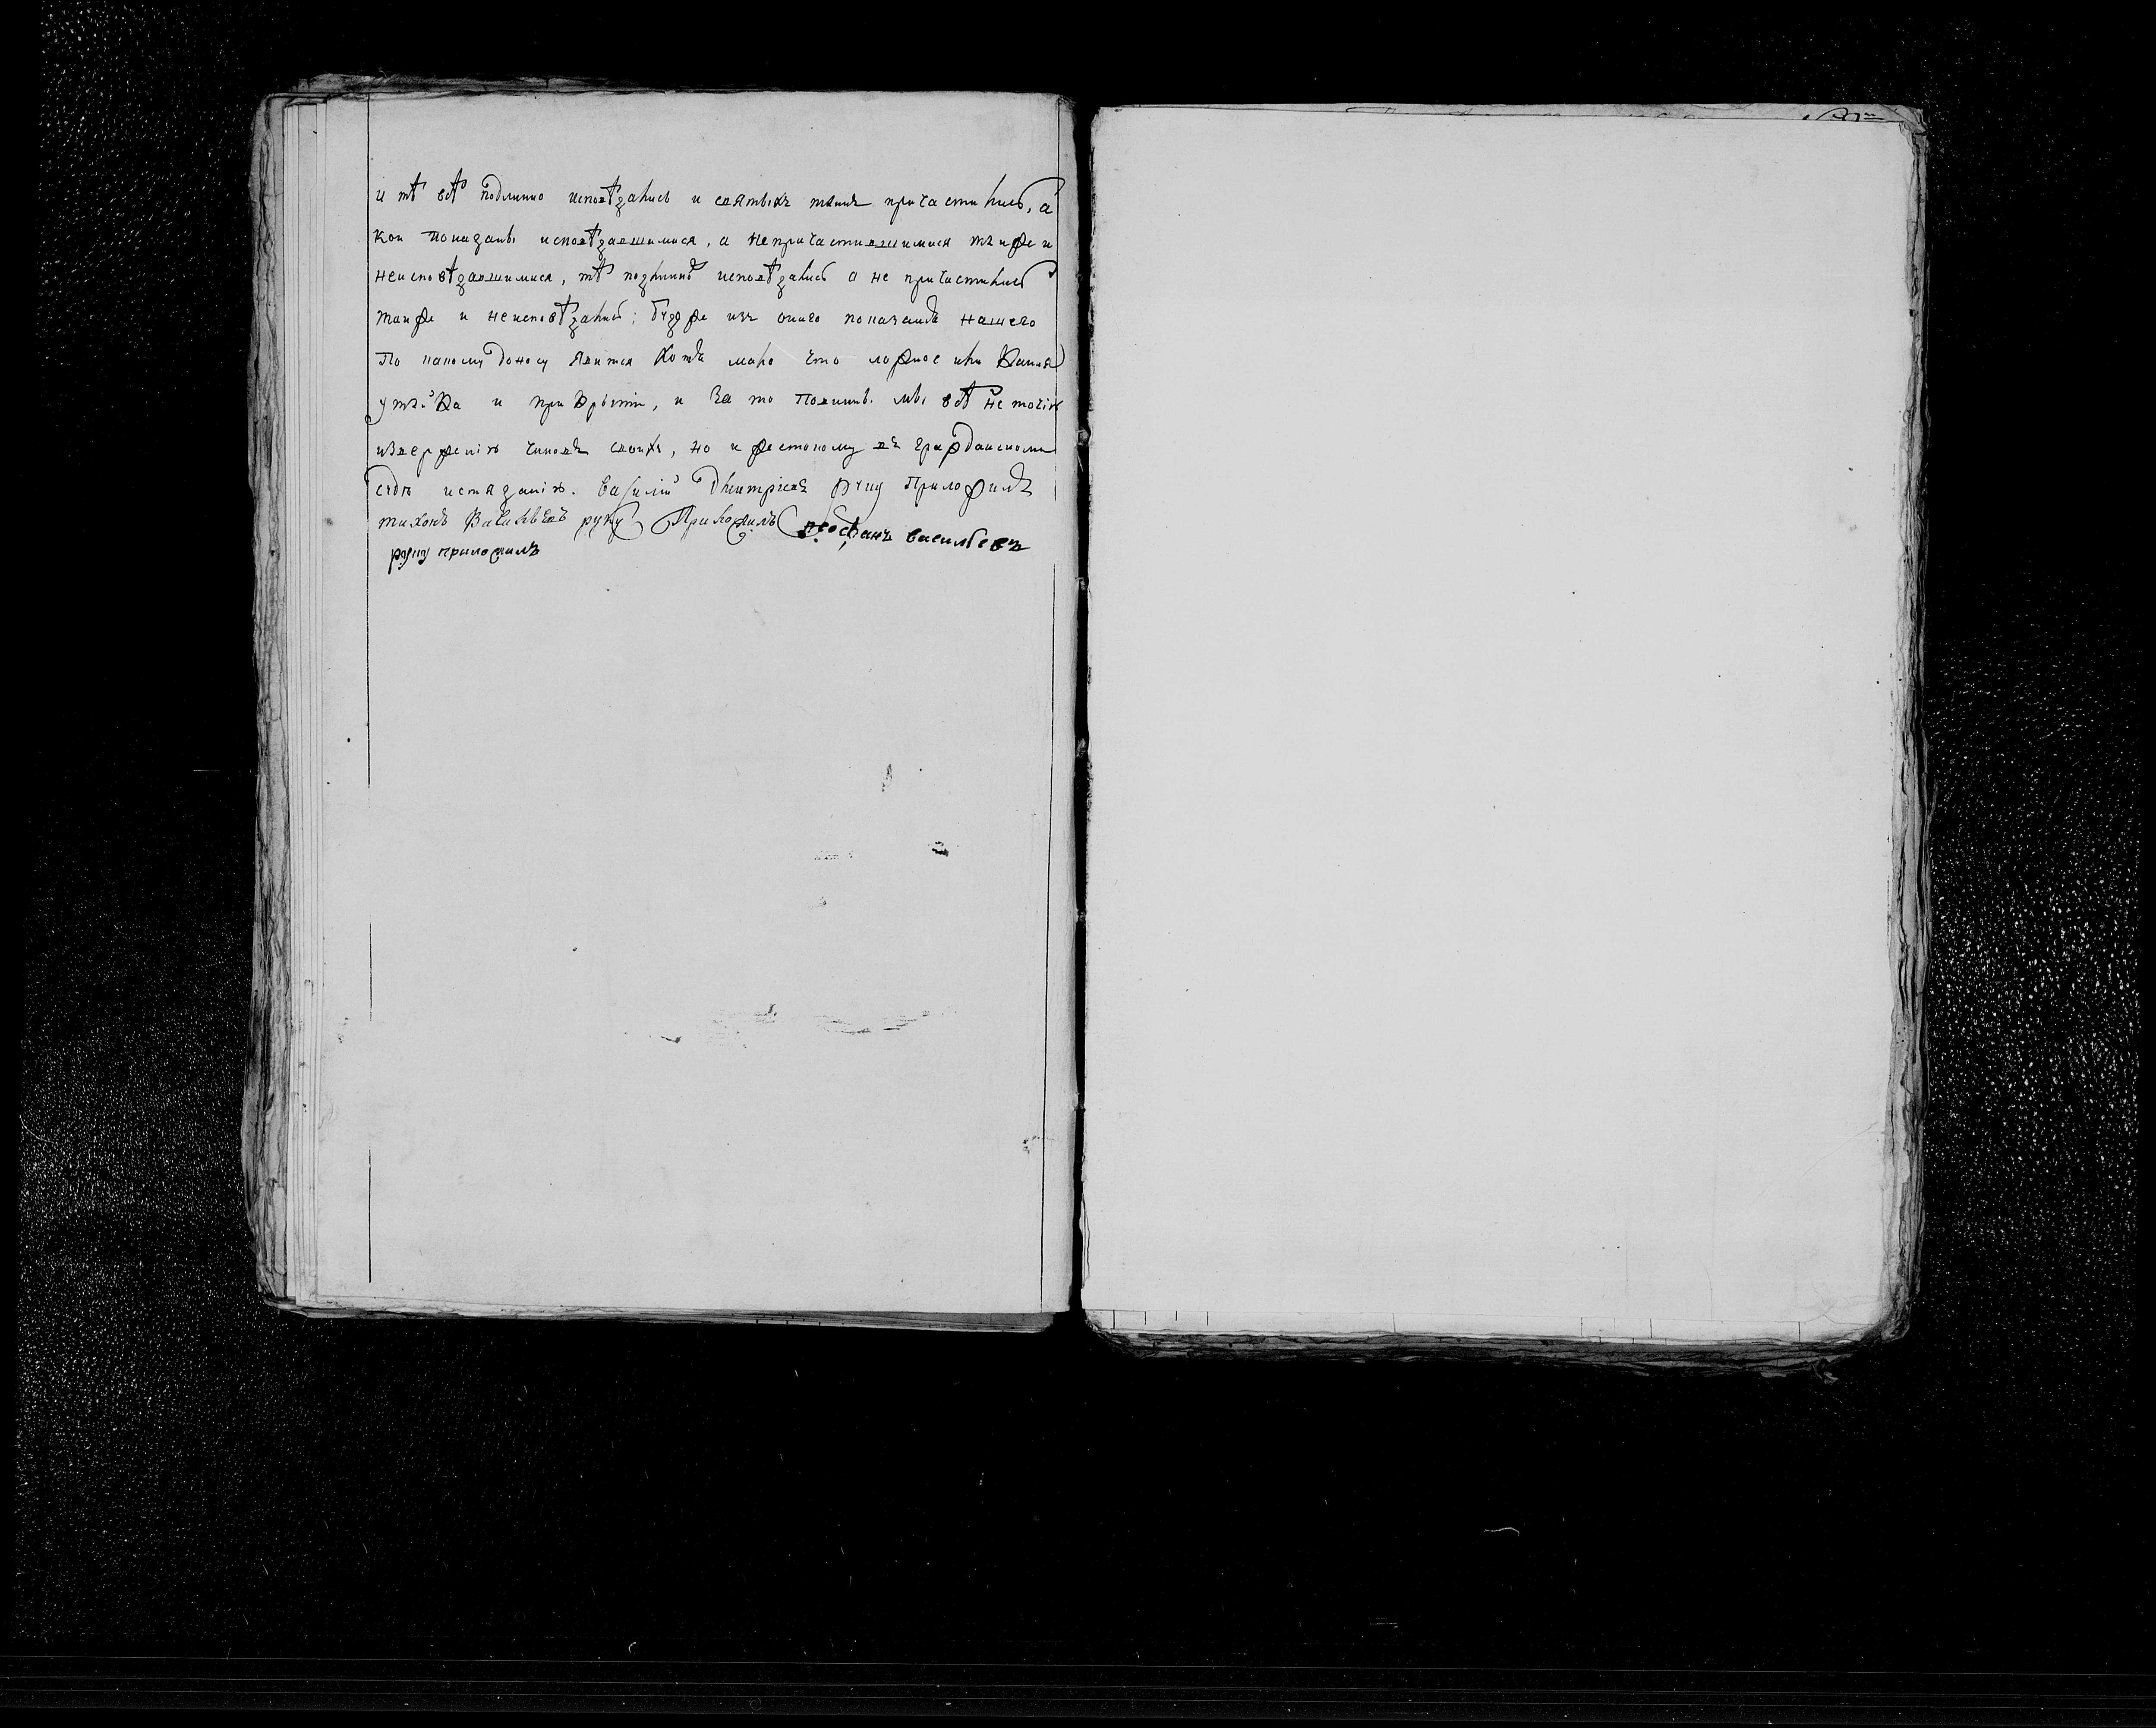 и тѣ всѣ подлинно исповѣдались и святыхъ таинъ причастились, а
кои показаны исповѣдавшимися, а непричастившимися такъже и
неисповѣдавшимися, тѣ подлинно исповѣдались а не причастились
такъже и неисповѣдались; будеже изъ онаго показанія нашего
по какому доносу явится хотя мало что ложное или какая
утайка и прикрытіе, и за то повинны мы всѣ не точію
изверженію чиновъ своихъ, но и жестокому въ гражданскомъ
судѣ истязанію. Василій Дмитріевъ руку приложилъ
тихонъ Васильевъ руку Приложилъ васильевъ
руку приложилъ